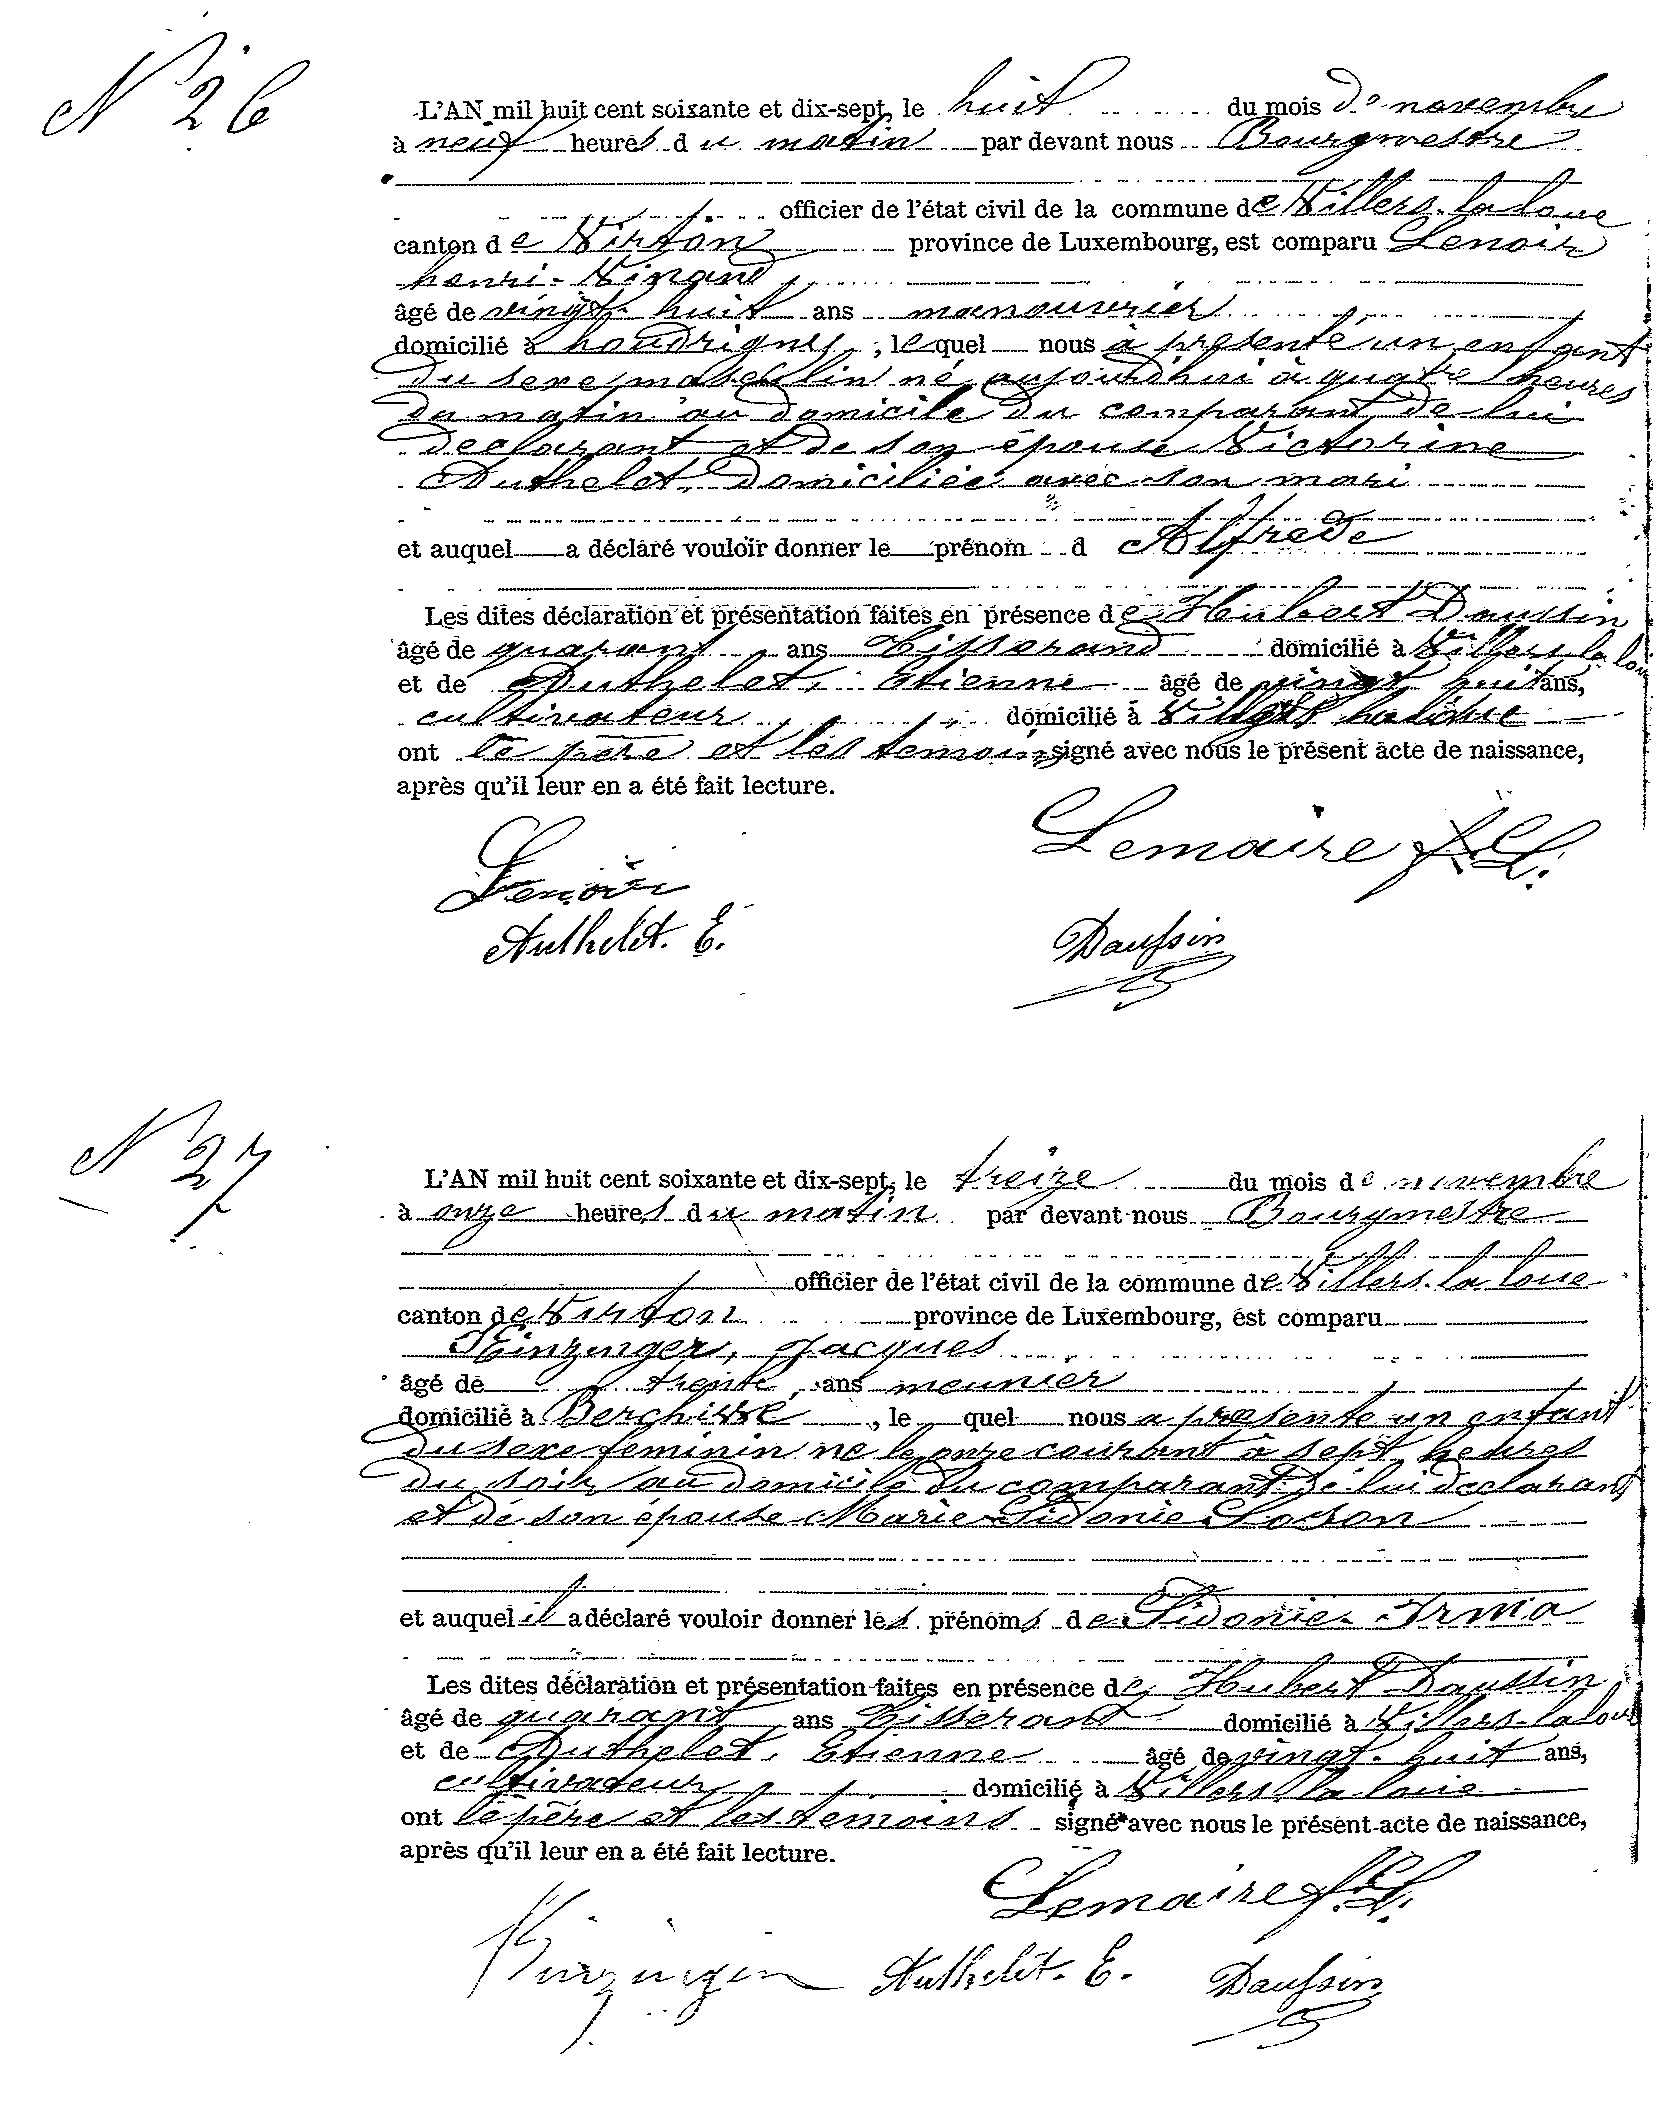 N° 26
L'AN mil huit cent soixante et dix-sept, le huit du mois de novembre
à neuf heures du matin par devant nous Bourgmestre
officier de l'état civil de la commune de Villers-la loue
canton de Virton province de Luxembourg, est comparu Lenoir
henri-Vinand
âgé de vingt-huit ans manouvrier
domicilié à houdrigny, lequel nous à présenté un enfant
du sexe masculin né aujourdhui à quatre heures
du matin au domicile du comparant, de lui
declarant et de son épouse Victorine
Authelet, domiciliée avec son mari
et auquel a déclaré vouloir donner le prénom d Alfrede
Les dites déclaration et présentation faites en présence de Hubert Daussin
âgé de quarant ans tisserand domicilié à Villers-la lou
et de Authelet, Etienne âgé de vingt huit ans,
cultivateur domicilié à Villers la loue
ont le père et les témoins signé avec nous le présent acte de naissance,
après qu'il leur en a été fait lecture.
Lemaire
Lenoir
Authelet. E.
Daussin
N° 27
L'AN mil huit cent soixante et dix-sept, le treize du mois de novembre
à onze heures du matin par devant nous Bourgmestre
officier de l'état civil de la commune de Villers-la loue
canton de Virton province de Luxembourg, est comparu
Kinzinger, Jacques
âgé de trente ans meunier
domicilié à Berchivé, le quel nous a présenté un enfant
du sexe feminin né le onze courant à sept heures
du soir, au domicile du comparant de lui declarant
et de son épouse Marie-Sidonie Loson
et auquel il a déclaré vouloir donner les prénoms de Sidonie-Irma
Les dites déclaration et présentation faites en présence de Hubert Daussin
âgé de quarant ans tisserant domicilié à Villers-la loue
et de Authelet, Etienne âgé de vingt-huit ans,
cultivateur domicilié à Villers la loue
ont le père et les temoins signé avec nous le présent acte de naissance,
après qu'il leur en a été fait lecture.
Lemaire
Kinzinger Authelet. E. Daussin